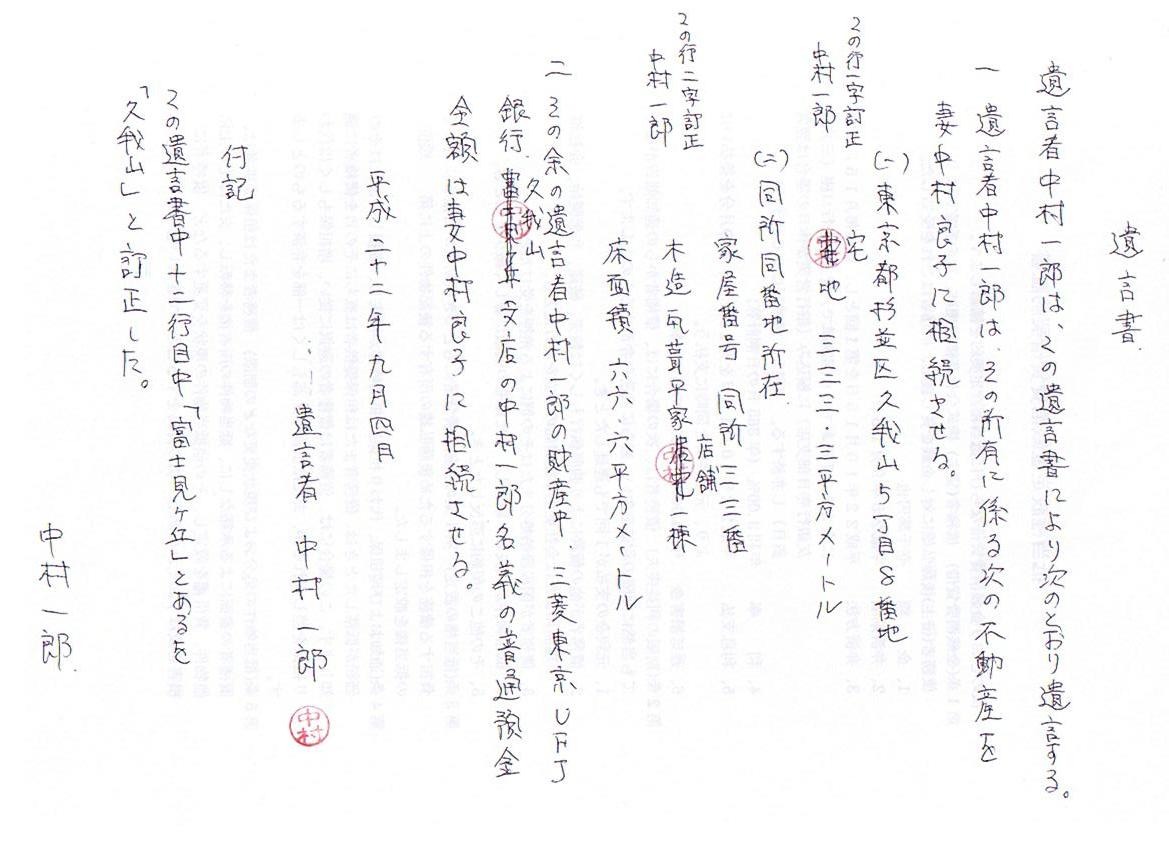 遺言書
遺言者中村一郎は、この遺言書により次のとおり遺言する。
一 遺言者中村一郎は、その所有に係る次の不動産を
妻中村良子に相続させる。
(一) 東京都杉並区久我山5丁目8番地
この行一字訂正
中村一郎
宅
地 三三三・三平方メートル
中村
(二) 同所同番地所在
家屋番号 同所 三三番
この行二字訂正
中村一郎
店舗
木造瓦葺平家 一棟
中村
床面積 六六・六平方メートル
二 その余の遺言者中村一郎の財産中、三菱東京UFJ
久我山
銀行、富士見ヶ丘支店の中村一郎名義の普通預金
中村
全額は妻中村良子に相続させる。
平成二十二年九月四日
遺言者 中村一郎
中村
付記
この遺言書中十二行目中「富士見ヶ丘」とあるを
「久我山」と訂正した。
中村一郎